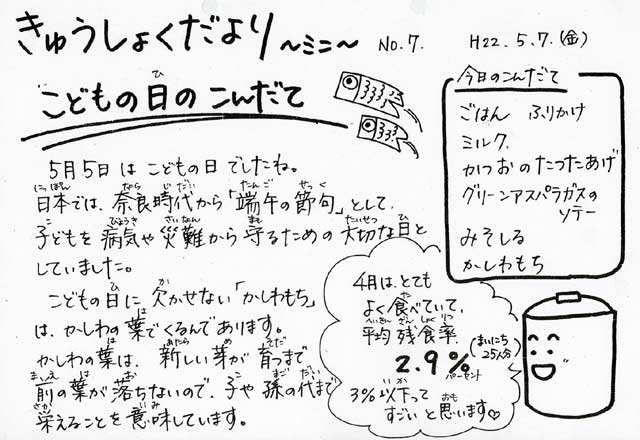 きゅうしょくだより 〜ミニ〜 NO.7. H22.5.7.(金)
こどもの日のこんだて
5月5日はこどもの日でしたね。
日本では、奈良時代から「端午の節句」として、
子どもを病気や災難から守るための大切な日と
していました。
こどもの日に欠かせない「かしわもち」
は、かしわの葉でくるんであります。
かしわの葉は、新しい芽が育つまで
前の葉が落ちないので、子や孫の代まで
栄えることを意味しています。
今日のこんだて
ごはん ふりかけ
ミルク
かつおのたつたあげ
グリーンアスパラガスの
ソテー
みそしる
かしわもち
4月は、とても
よく食べていて、
平均残食率
2.9% (まいにち25人分)
パーセント
3%以下って
すごいと思います♡